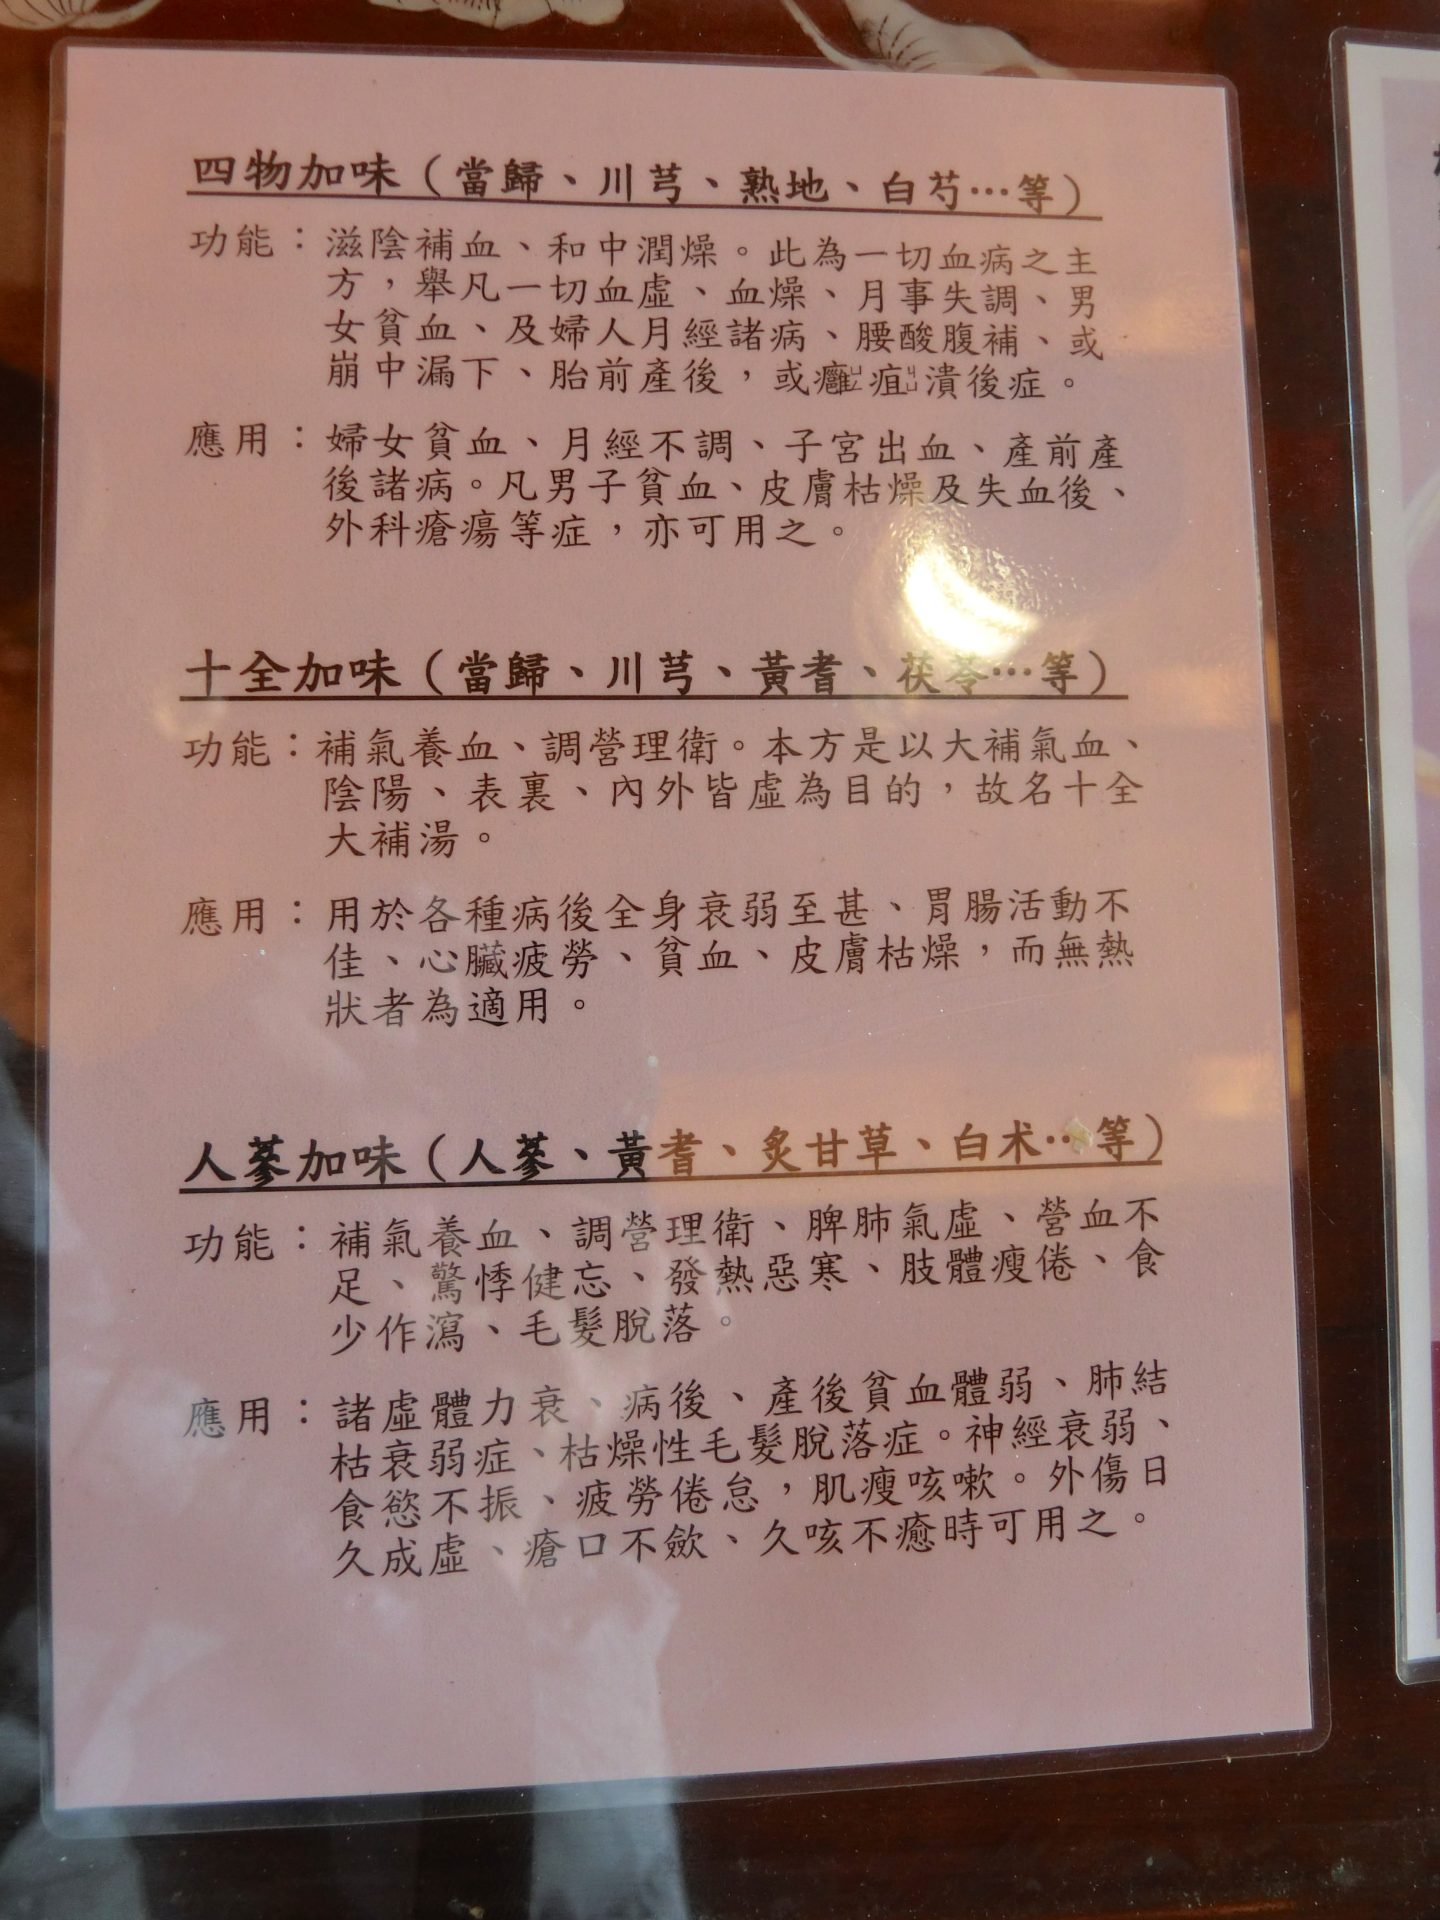 四物加味（當歸、川芎、熟地、白芍…等）
功能：滋陰補血、和中潤燥。此為一切血病之主
方，舉凡一切血虛、血燥、月事失調、男
女貧血、及婦人月經諸病、腰酸腹補、或
崩中漏下、胎前產後，或癰ㄩㄥ疽ㄐㄩ潰後症。
應用：婦女貧血、月經不調、子宮出血、產前產
後諸病。凡男子貧血、皮膚枯燥及失血後、
外科瘡瘍等症，亦可用之。
十全加味（當歸、川芎、黃耆、茯苓…等）
功能：補氣養血、調營理衛。本方是以大補氣血、
陰陽、表裏、內外皆虛為目的，故名十全
大補湯。
應用：用於各種病後全身衰弱至甚、胃腸活動不
佳、心臟疲勞、貧血、皮膚枯燥，而無熱
狀者為適用。
人蔘加味（人蔘、黃耆、炙甘草、白术…等）
功能：補氣養血、調營理衛、脾肺氣虛、營血不
足、驚悸健忘、發熱惡寒、肢體瘦倦、食
少作瀉、毛髮脫落。
應用：諸虛體力衰、病後、產後貧血體弱、肺結
枯衰弱症、枯燥性毛髮脫落症。神經衰弱、
食慾不振、疲勞倦怠，肌瘦咳嗽。外傷日
久成虛、瘡口不歛、久咳不癒時可用之。